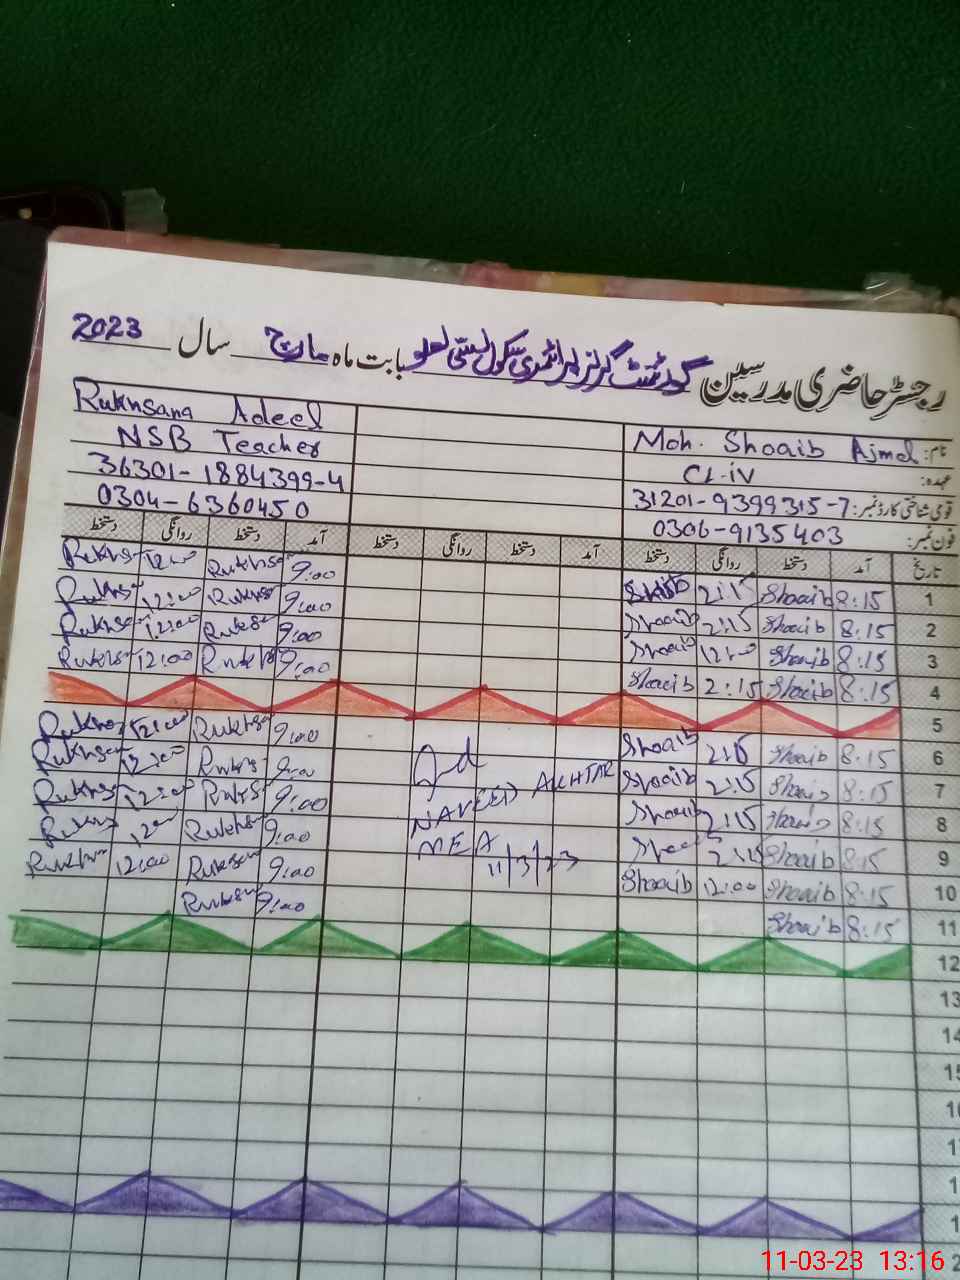 رجسٹر حاضری مدرسین گورنمنٹ گرلز پرائمری سکول بستی بابت ماہ مارچ سال 2023
نام: Moh. Shoaib Ajmal
Rukhsana Adeel
عہدہ: CL-iV
NSB Teacher
قومی شناختی کارڈ نمبر: 31201-9399315-7
36301-1884399-4
فون نمبر: 0306-9135403
0304-6360450
تاریخ آمد دستخط روانگی دستخط آمد دستخط روانگی دستخط آمد دستخط روانگی دستخط
1 8:15 Shoaib 2:15 9:00 Rukhsa 12:00 Rukhs
2 8:15 Shoaib 2:15 Shoaib 9:00 Rukhs 12:00 Rukhs
3 8:15 Shoaib 12:00 Shoaib 9:00 Ruks 12:00 Rukhs
4 8:15 Shoaib 2:15 Shoaib 9:00 Rukhs 12:00 Rukhs
5
6 8:15 Shoaib 2:15 Shoaib 9:00 Rukhsa 12:00 Rukhs
7 8:15 Shoaib 2:15 Shoaib 9:00 Rukhs 12:00 Rukhsa
8 8:15 Shoaib 2:15 Shoaib 9:00 Rukhs 12:00 Rukhs
9 8:15 Shoaib 2:15 9:00 Rukhsa 12:00 Rukhs
10 8:15 Shoaib 12:00 Shoaib 9:00 Rukhsan 12:00 Rukhs
11 8:15 Shoaib 9:00 Rukhsan
NAVEED AKHTAR
MEA
11/3/23
12
13
14
15
16
11-03-23 13:16